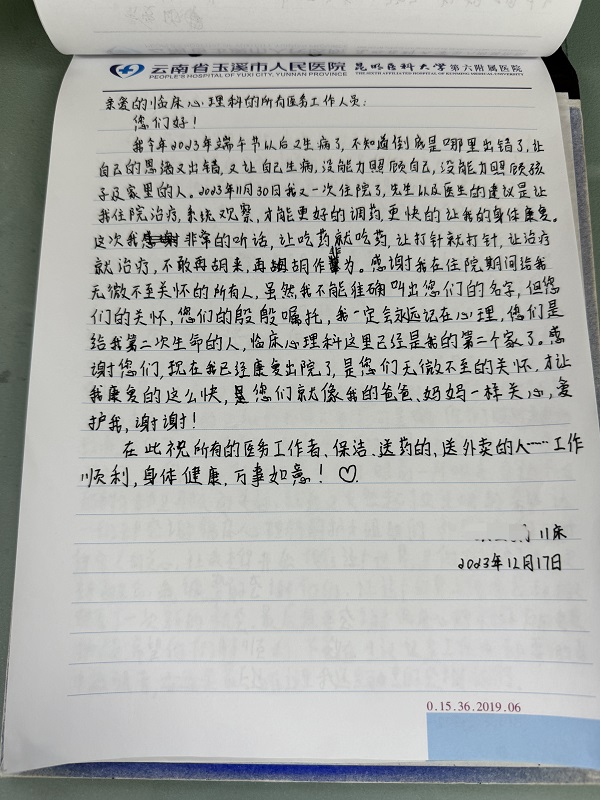 云南省玉溪市人民医院 昆明医科大学第六附属医院
PEOPLE'S HOSPITAL OF YUXI CITY, YUNNAN PROVINCE THE SIXTH AFFILIATED HOSPITAL OF KUNMING MEDICAL UNIVERSITY
亲爱的临床心理科的所有医务工作人员:
您们好!
我今年2023年端午节以后又生病了,不知道倒底是哪里出错了,让
自己的思绪又出错,又让自己生病,没能力照顾自己,没能力照顾孩
子及家里的人。2023年11月30日我又一次住院了,先生以及医生的建议是让
我住院治疗,系统观察,才能更好的调药,更快的让我的身体康复。
这次我非常的听话,让吃药就吃药,让打针就打针,让治疗
就治疗,不敢再胡来,再胡作为。感谢我在住院期间给我
无微不至关怀的所有人,虽然我不能准确叫出您们的名字,但您
们的关怀,您们的殷殷嘱托,我一定会永远记在心理,您们是
给我第二次生命的人,临床心理科这里已经是我的第二个家了。感
谢您们,现在我已经康复出院了,是您们无微不至的关怀,才让
我康复的这么快,是您们就像我的爸爸、妈妈一样关心,爱
护我,谢谢!
在此祝所有的医务工作者、保洁、送药的,送外卖的人……工作
顺利,身体健康,万事如意!♡
11床
2023年12月17日
0.15.36.2019.06